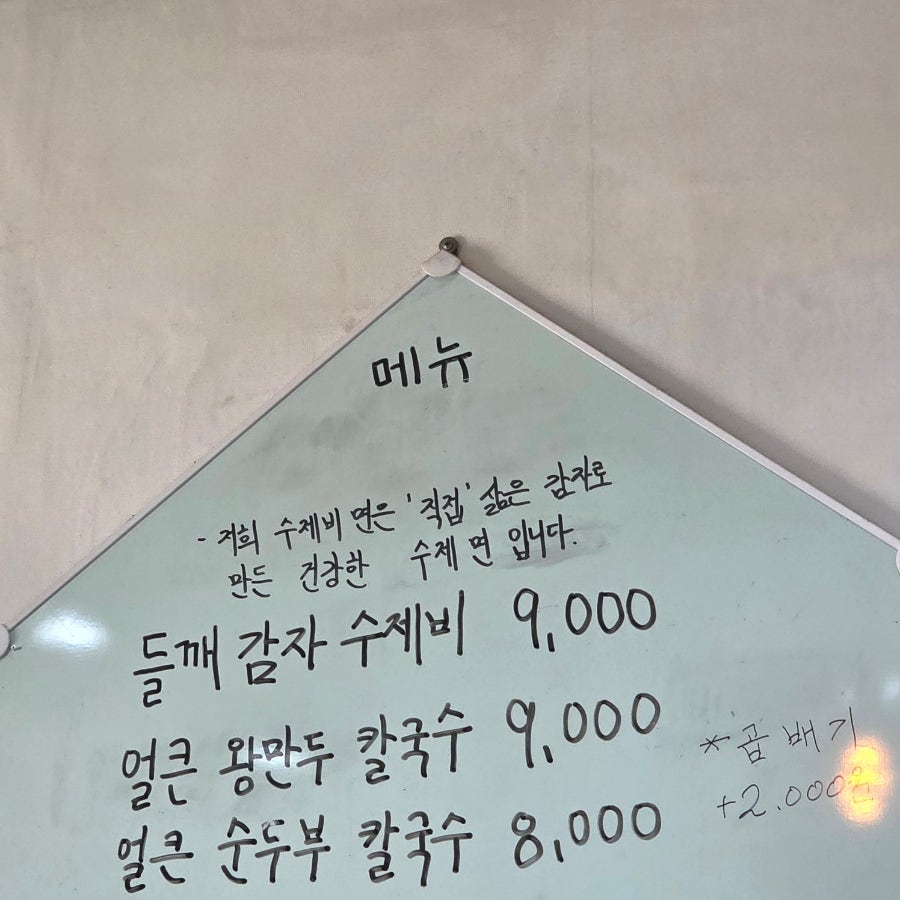 메뉴
- 저희 수제비 면은 '직접' 삶은 감자로
만든 건강한 수제 면 입니다.
들깨 감자 수제비 9,000
얼큰 왕만두 칼국수 9,000
얼큰 순두부 칼국수 8,000
*곱배기
+2.000원